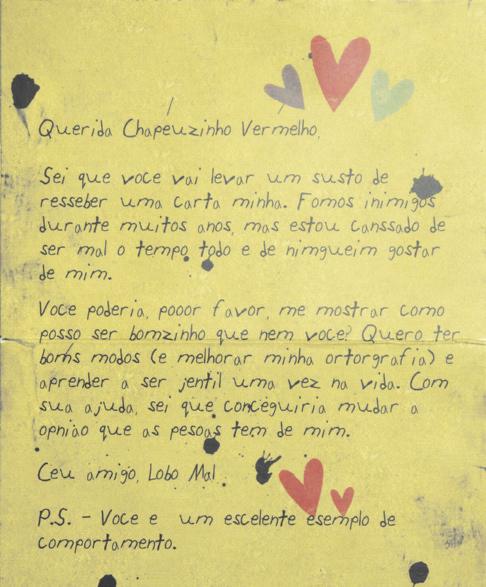 Querida Chapeuzinho Vermelho,
Sei que voce vai levar um susto de
resseber uma carta minha. Fomos inimigos
durante muitos anos, mas estou canssado de
ser mal o tempo todo e de nimgueim gostar
de mim.
Voce poderia, pooor favor, me mostrar como
posso ser bomzinho que nem voce? Quero ter
boms modos (e melhorar minha ortorgrafia) e
aprender a ser jentil uma vez na vida. Com
sua ajuda, sei que conceguiria mudar a
opniao que as pesoas tem de mim.
Ceu amigo, Lobo Mal
P.S. - Voce e um escelente esemplo de
comportamento.